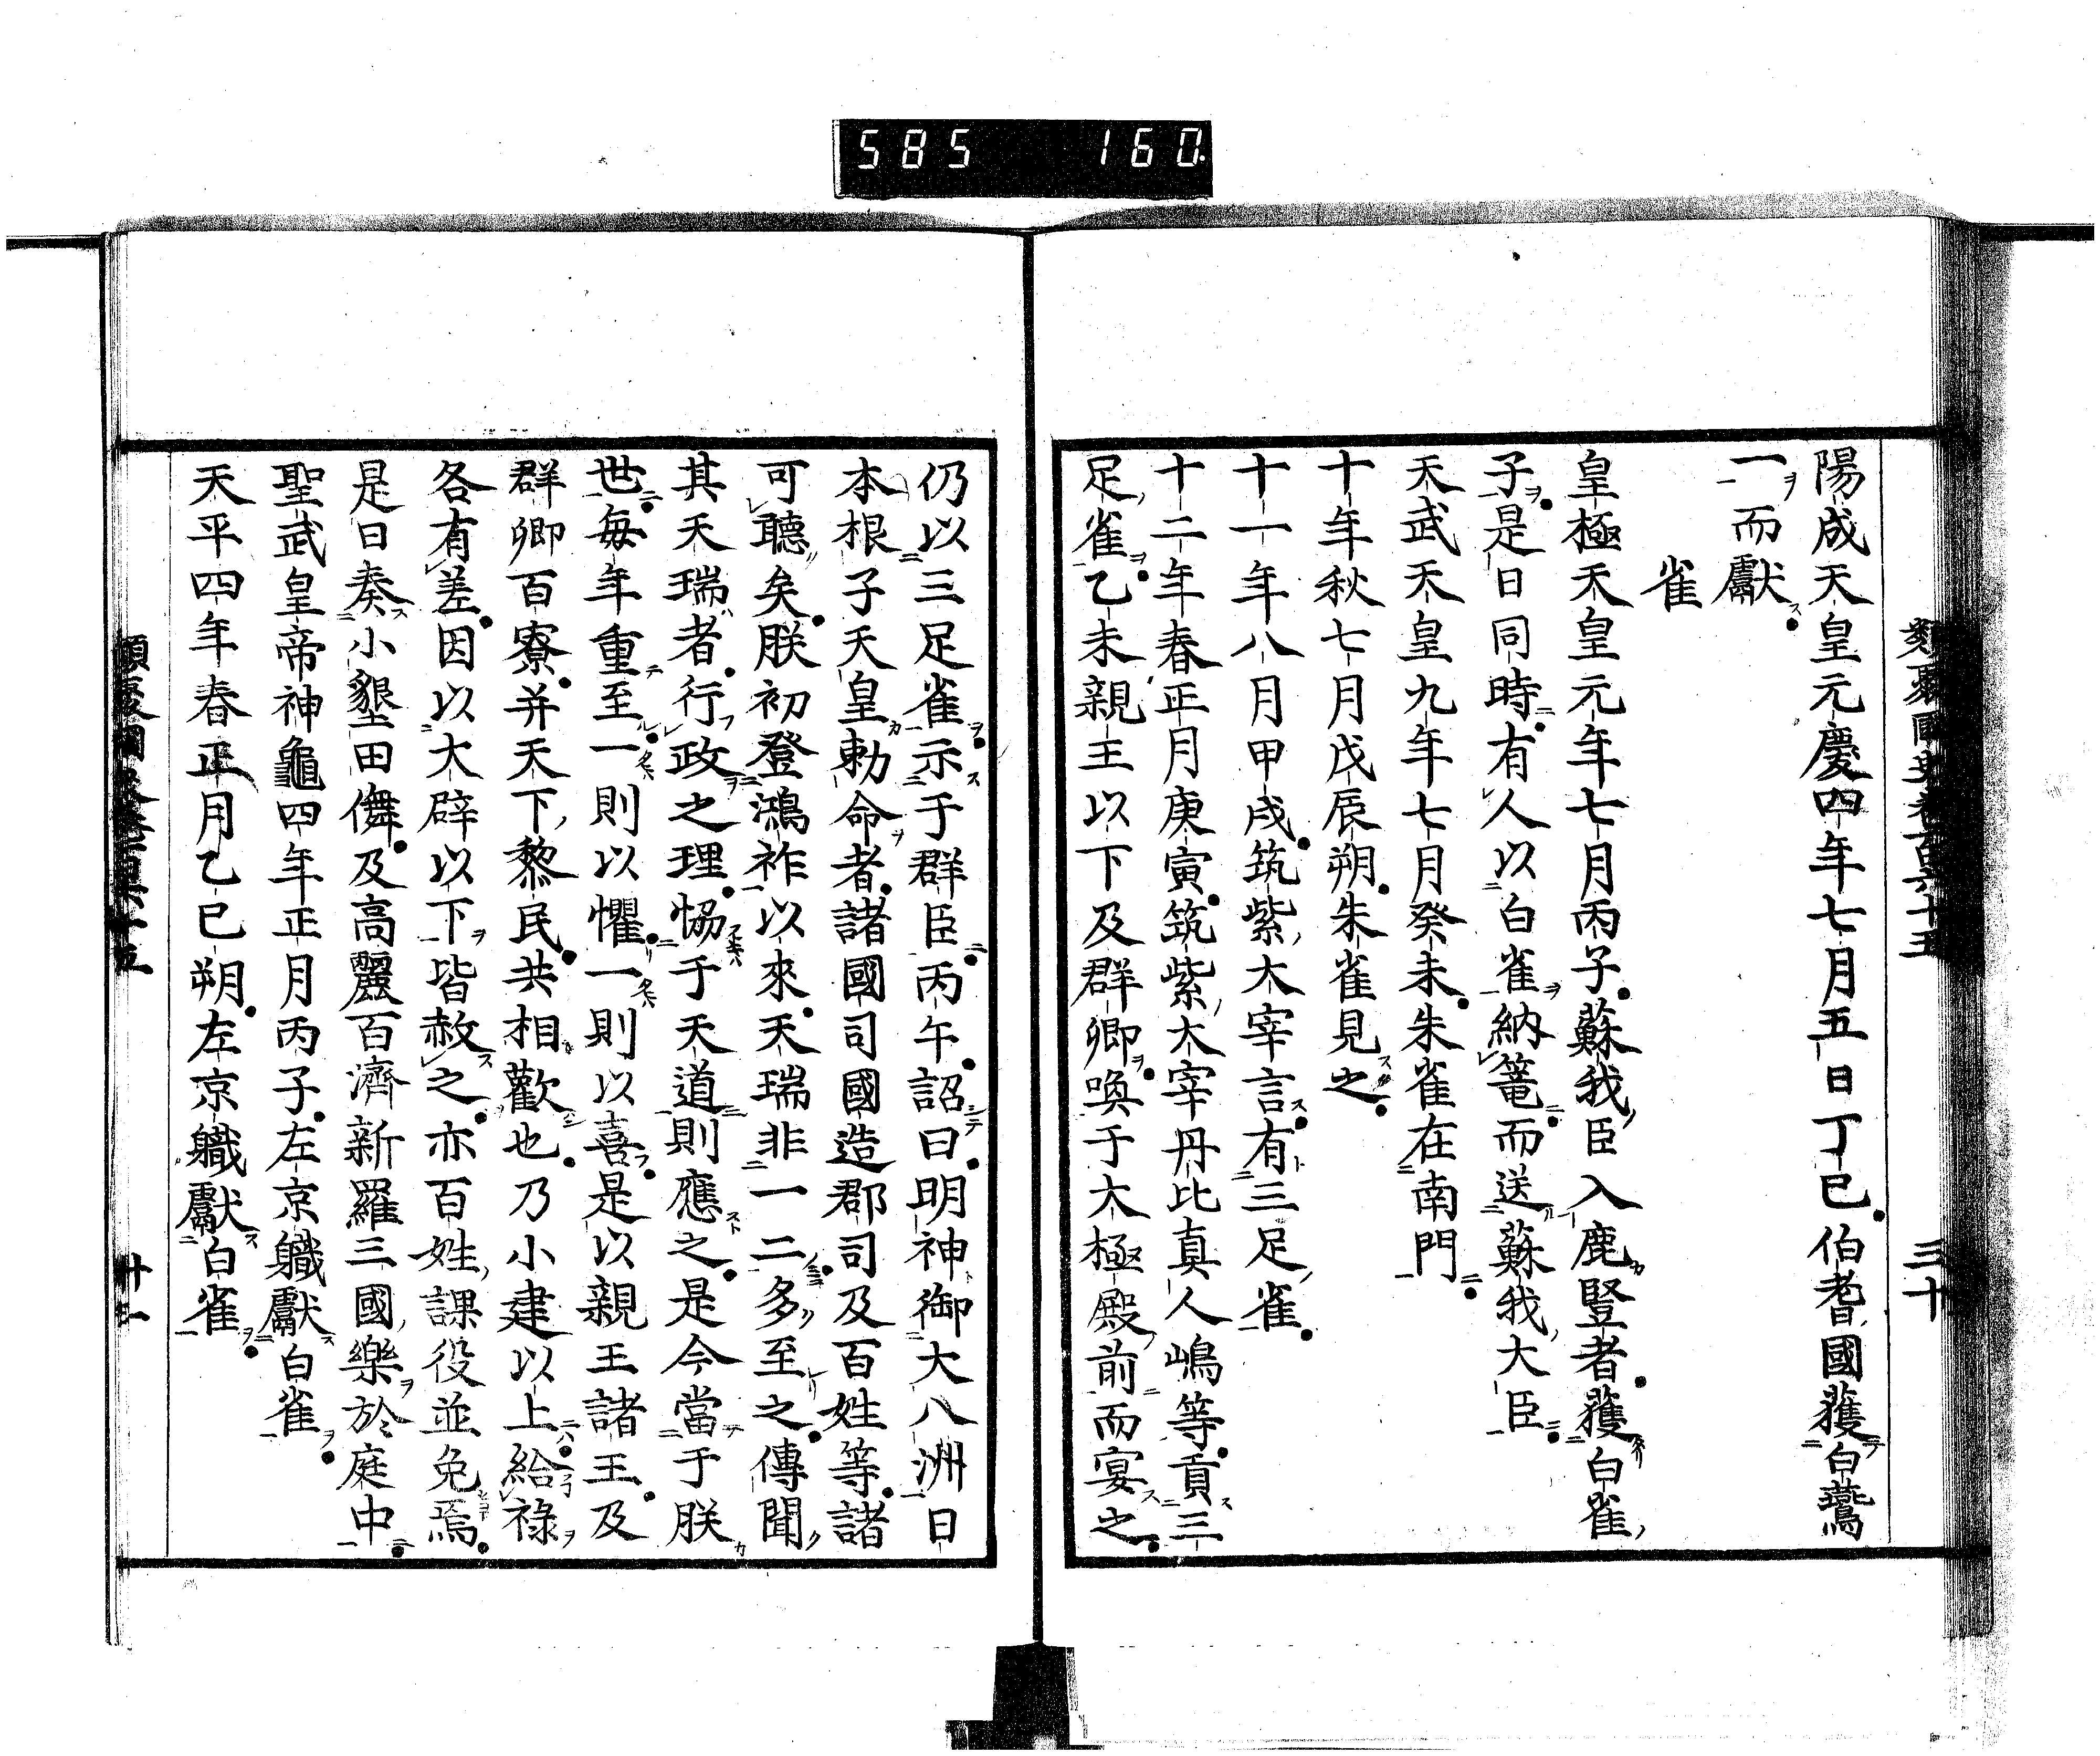 585 160
類聚國史卷百六十五 三十
陽成天皇元慶四年七月五日丁巳伯耆國獲白鷰
一而獻
雀
皇極天皇元年七月丙子蘇我臣入鹿豎者獲白雀
子是日同時有人以白雀納篭而送蘇我大臣
天武天皇九年七月癸未朱雀在南門
十年秋七月戊辰朔朱雀見之
十一年八月甲戌筑紫大宰言有三足雀
十二年春正月庚寅筑紫大宰丹比真人嶋等貢三
足雀乙未親王以下及群卿喚于大極殿前而宴之
仍以三足雀示于群臣丙午詔曰明神御大八洲日
本根子天皇勅命者諸國司國造郡司及百姓等諸
可聽矣朕初登鴻祚以來天瑞非一二多至之傳聞
其天瑞者行政之理恊于天道則應之是今當于朕
世毎年重至一則以懼一則以喜是以親王諸王及
群卿百寮并天下黎民共相歡也乃小建以上給祿
各有差因以大辟以下皆赦之亦百姓課役並免焉
是日奏小墾田儛及高麗百濟新羅三國樂於庭中
聖武皇帝神龜四年正月丙子左京職獻白雀
天平四年春正月乙巳朔左京職獻白雀
類聚國史卷百六十五 卅一